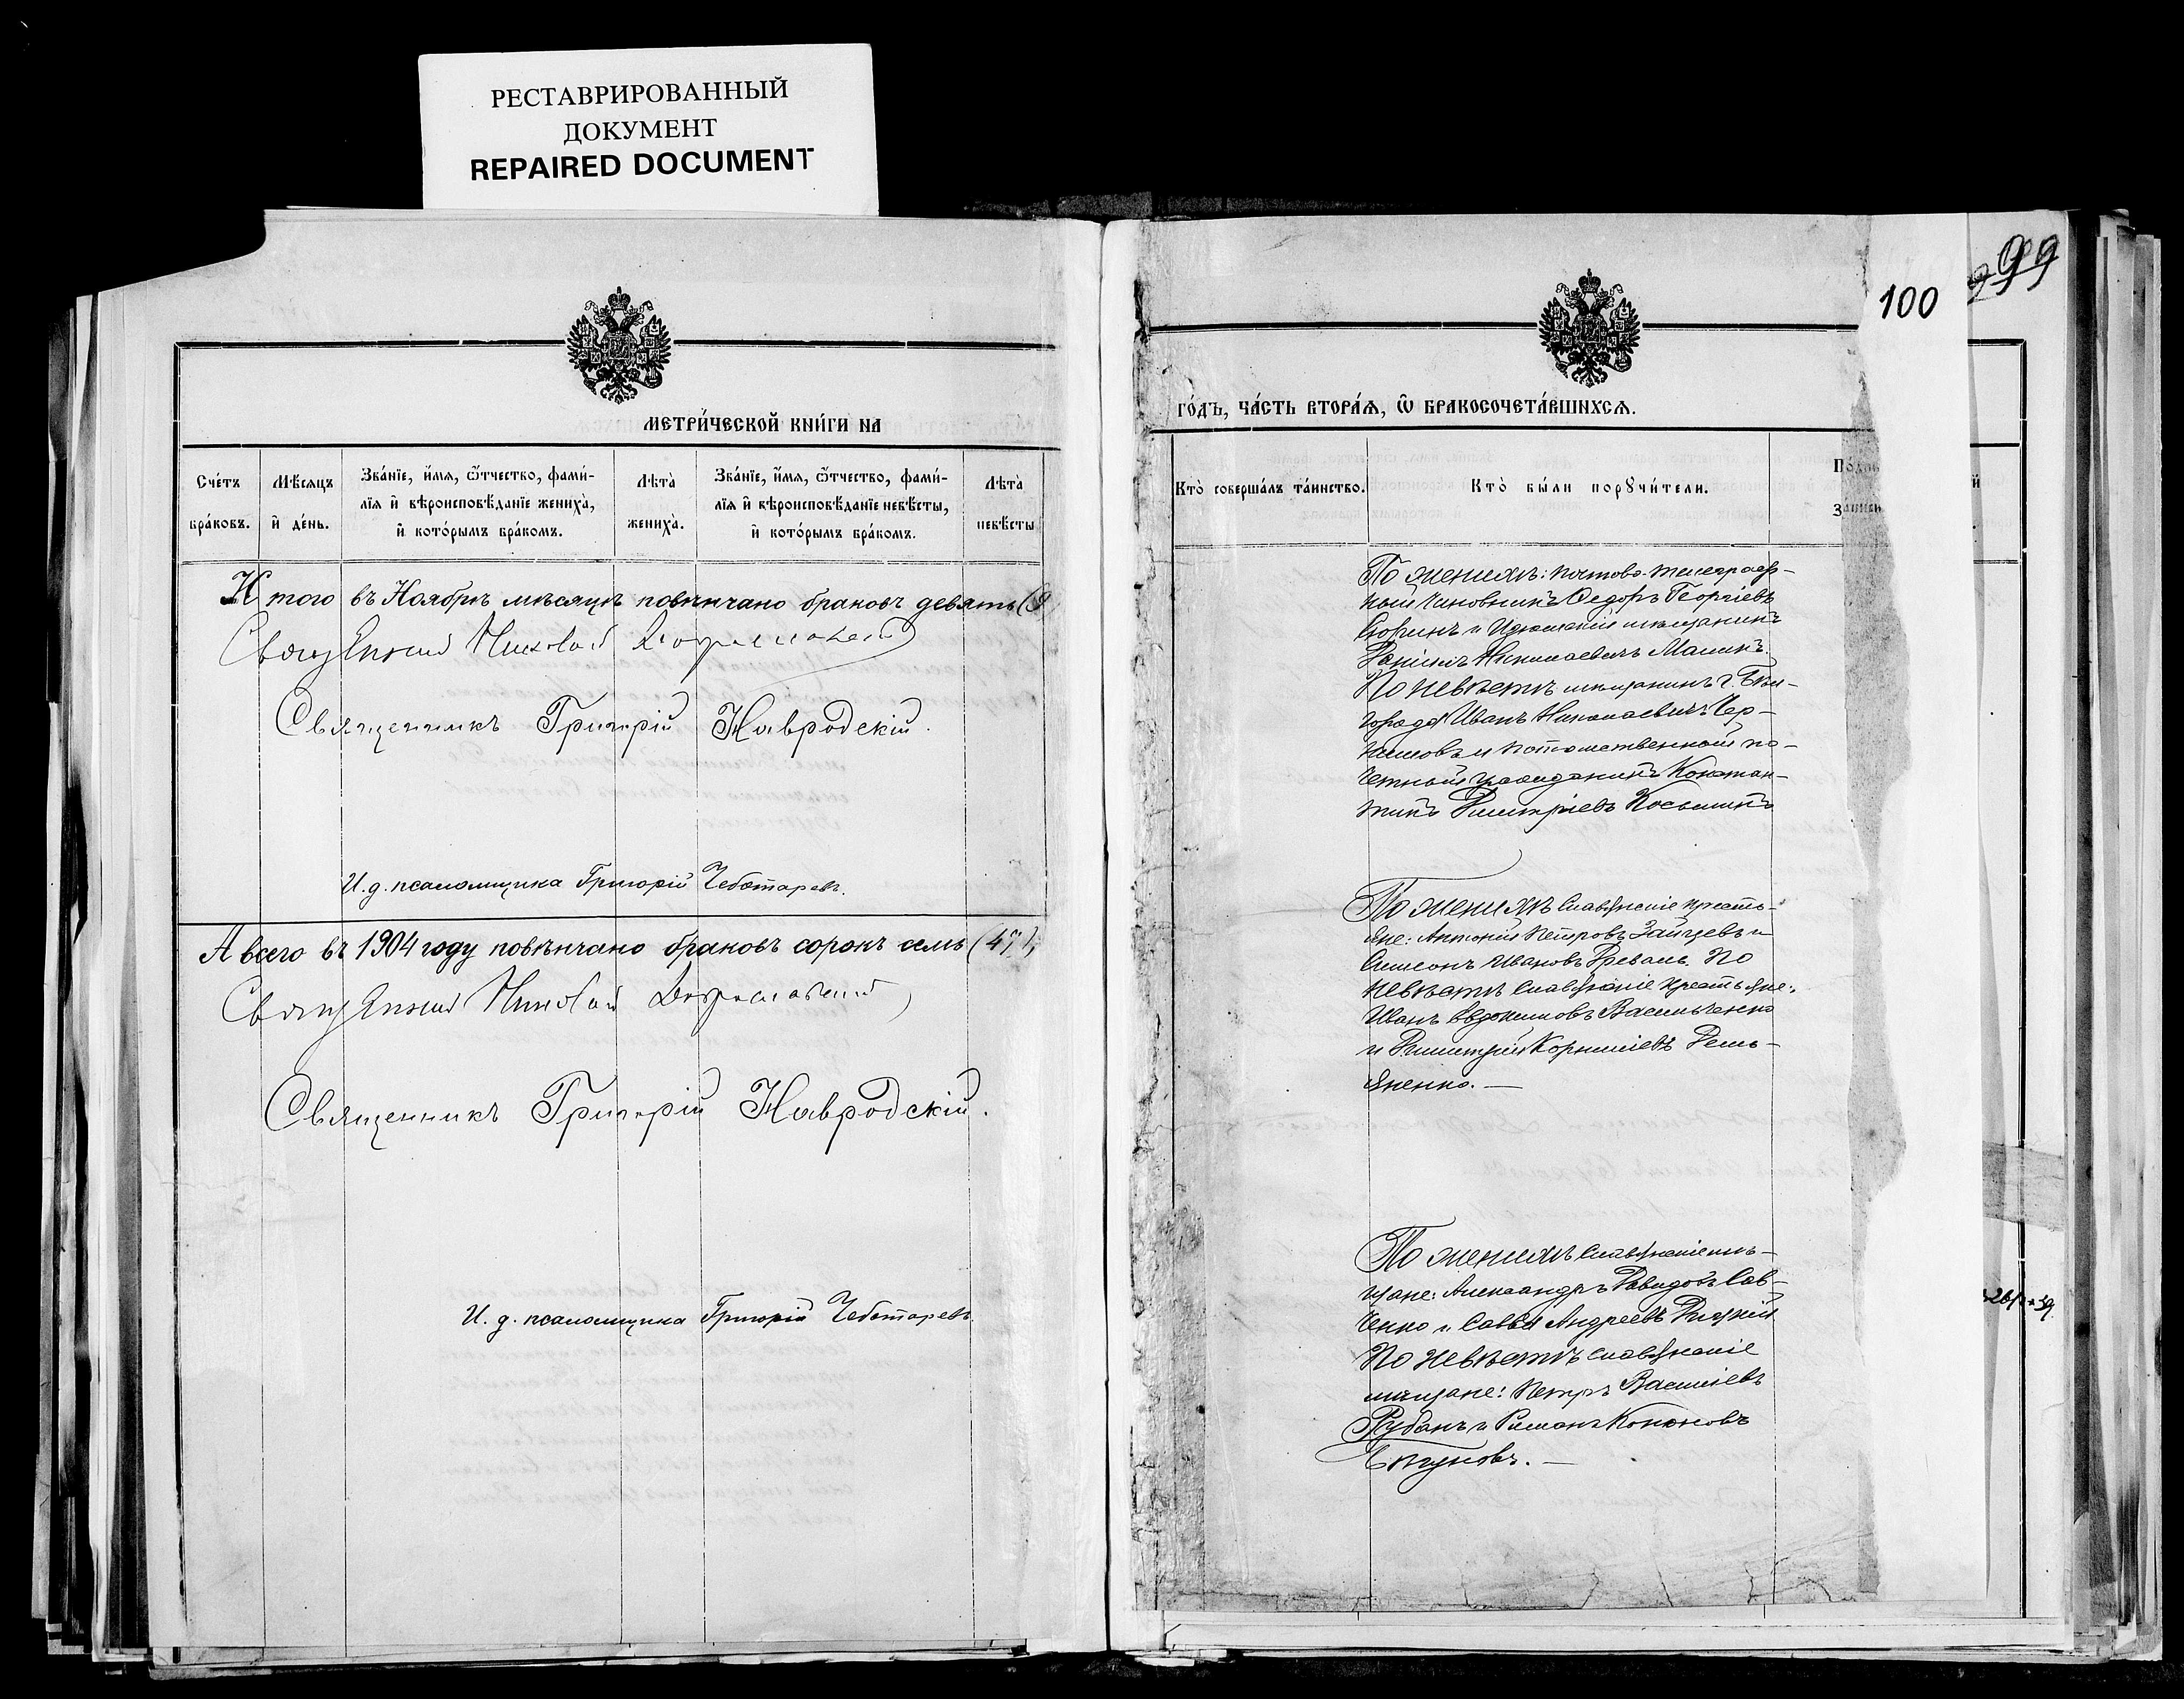 РЕСТАВРИРОВАННЫЙ
ДОКУМЕНТ
REPAIRED DOCUMENT
МЕТРИ́ЧЕСКОЙ КНИ́ГИ НА
Сче́тъ
бра́ковъ.
Мѣ́сяцъ
и҆ де́нь.
Зва́нїе, и҆́мя, ѻ҆́тчество, фами́-
лїя и҆ вѣроисповѣ́данїе жениха̀,
и҆ кото́рымъ бра́комъ.
Лѣта̀
жениха̀.
Зва́нїе, и҆́мя, ѻ҆́тчество, фами́-
лїя и҆ вѣроисповѣ́данїе невѣ́сты,
и҆ кото́рымъ бра́комъ.
Лѣта̀
невѣ́сты
Итого въ Ноябрѣ мѣсяцѣ повѣнчано браковъ девять (9
Священникъ Николай
Священникъ Григорій Навродскій.
И. д. псаломщика Григорій Чеботаревъ.
А всего въ 1904 году повѣнчано браковъ сорокъ семь (47),
Священникъ Николай
Священникъ Григорій Навродскій.
И. д. псаломщика Григорій Чеботаревъ.
99
100
ГО́ДЪ, ЧА́СТЬ ВТОРА́Ѧ, Ѽ БРАКОСОЧЕТА́ВШИХСѦ.
Кто̀ соверша́лъ та́инство.
Кто̀ бы́ли порꙋчи́тели.
По женихѣ: почтово-телеграф-
ный чиновникъ Ѳедоръ Георгіевъ
и Изюмскій мѣщанинъ
Николаевичъ Малинъ.
По невѣстѣ мѣщанинъ г. Бѣл-
города Иванъ Николаевичъ Чер-
и потомственный по-
четный гражданинъ Констан-
тинъ Димитріевъ Косьминъ
По женихѣ Славянскіе кресть-
яне: Антоній Петровъ Зайцевъ и
Симеонъ Ивановъ Греваль. По
невѣстѣ Славянскіе крестьяне:
Иванъ Евдокимовъ Васильченко
и Димитрій Корниліевъ Демь-
яненко. —
По женихѣ Славянскіе мѣ-
щане: Александръ Давидовъ Сав-
ченко и Савва Андреевъ
По невѣстѣ Славянскіе
мѣщане: Петръ Василіевъ
Рубанъ и Кононовъ
Бѣгуновъ. —